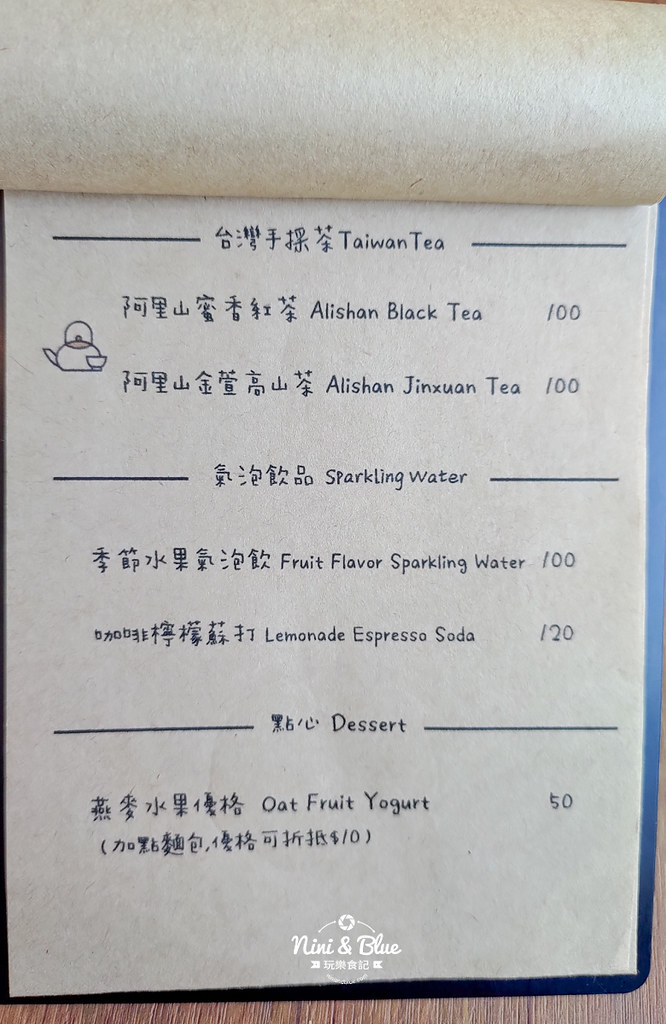 台灣手採茶 Taiwan Tea
阿里山蜜香紅茶 Alishan Black Tea 100
阿里山金萱高山茶 Alishan Jinxuan Tea 100
氣泡飲品 Sparkling Water
季節水果氣泡飲 Fruit Flavor Sparkling Water 100
咖啡檸檬蘇打 Lemonade Espresso Soda 120
點心 Dessert
燕麥水果優格 Oat Fruit Yogurt 50
(加點麵包,優格可折抵$10)
Nini & Blue
玩樂食記